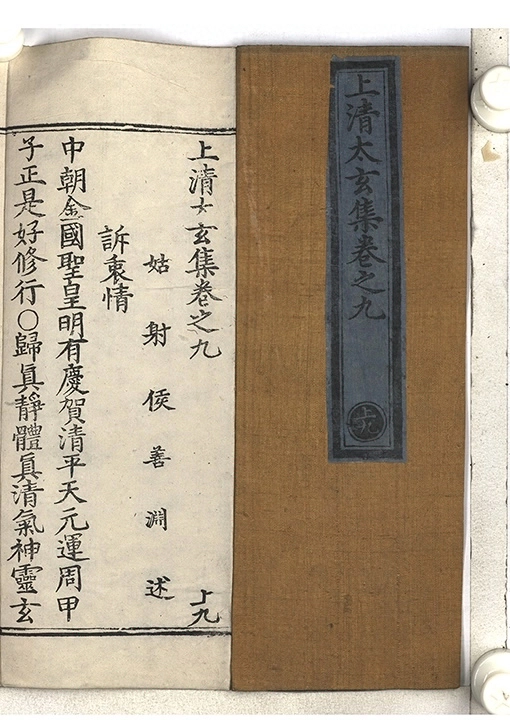 上清太玄集卷之九
上九
上清太玄集卷之九 上九
姑射侯善淵述
訴衷情
中朝金國聖皇明有慶賀清平天元運周甲
子正是好修行○歸眞靜體眞清氣神靈玄